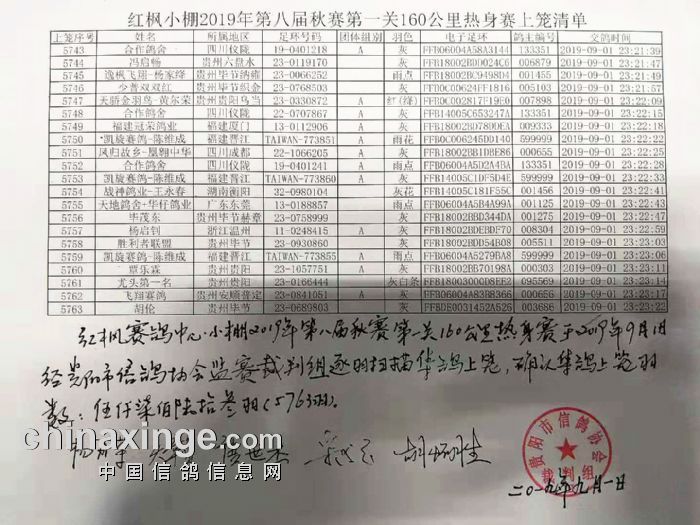 红枫小棚2019年第八届秋赛第一关160公里热身赛上笼清单
上笼序号 姓名 所属地区 足环号码 团体组别 羽色 电子足环 鸽主编号 交鸽时间
5743 合作鸽舍 四川仪陇 19-0401218 A 灰 FFB06004A58A3144 133351 2019-09-01 23:21:39
5744 冯启畅 贵州六盘水 23-0119170 灰 006879 2019-09-01 23:21:47
5745 逸枫飞翔-杨家绛 贵州毕节纳雍 23-0066252 雨点 FFB18002BC9498D4 001455 2019-09-01 23:21:49
5746 少普双双红 贵州毕节织金 23-0768503 灰 001657 2019-09-01 23:21:57
5747 天骄金羽鸟-黄尔荣 贵州贵阳乌当 23-0330872 A 红(绛) 007898 2019-09-01 23:22:09
5748 合作鸽舍 四川仪陇 22-0707867 A 灰 FFB14005C653247A 133351 2019-09-01 23:22:15
5749 福建冠荣鸽业 福建厦门 13-0112906 A 灰 FFB18002BD789DEA 009333 2019-09-01 23:22:18
5750 凯旋赛鸽-陈维成 福建晋江 TAIWAN-773851 A 雨花 599999 2019-09-01 23:22:22
5751 四川成都 22-1066205 A 灰 000655 2019-09-01 23:22:28
5752 合作鸽舍 四川仪陇 19-0401241 A 灰 FFB06004A5D2A4BA 133351 2019-09-01 23:22:28
5753 凯旋赛鸽-陈维成 福建晋江 TAIWAN-773860 A 灰 FFB14005C1DF5D4E 599999 2019-09-01 23:22:33
5754 战神鸽业-王永春 湖南衡阳 32-0980104 灰花 FFB14005C181F55C 001456 2019-09-01 23:22:41
5755 天地鸽舍-华仔鸽业 广东东莞 13-0188857 雨点 FFB06004A5B4A99A 001125 2019-09-01 23:22:43
5756 毕茂东 贵州毕节赫章 23-0758999 灰 FFB18002BBD344DA 001275 2019-09-01 23:22:47
5757 杨启钊 浙江温州 11-0248415 A 灰 FFB18002BDEBDF70 008304 2019-09-01 23:22:59
5758 胜利者联盟 贵州毕节 23-0930860 灰 FFB18002BDD54B08 005511 2019-09-01 23:23:03
5759 凯旋赛鸽-陈维成 福建晋江 TAIWAN-773855 A 雨点 FFB06004A5279BA8 599999 2019-09-01 23:23:13
5760 覃乐森 贵州贵阳 23-1057751 A 灰 FFB18002BB70198A 000301 2019-09-01 23:23:23
5761 尤头第一名 贵州贵阳 23-0166444 灰白条 FFB18003000D8EE2 2019-09-01 23:23:41
5762 飞翔赛鸽 贵州安顺普定 23-0841051 A 灰 FFB06004A83BB366 000656 2019-09-01 23:23:47
5763 胡伦 贵州毕节 23-0689803 灰 FFB5DE0031452AE6 000526 2019-09-01 23:23:54
红枫赛鸽中心·小棚2019年第八届秋赛第一关160公里热身赛于2019年9月1日
经贵阳市信鸽协会监赛裁判组逐羽扫描集鸽上笼,确认集鸽上笼羽
数:伍仟柒佰陆拾叁羽(5763羽)。
chinaxinge.com
中国信鸽信息网
贵阳市信鸽协会
裁判组
二〇一九年九月一日